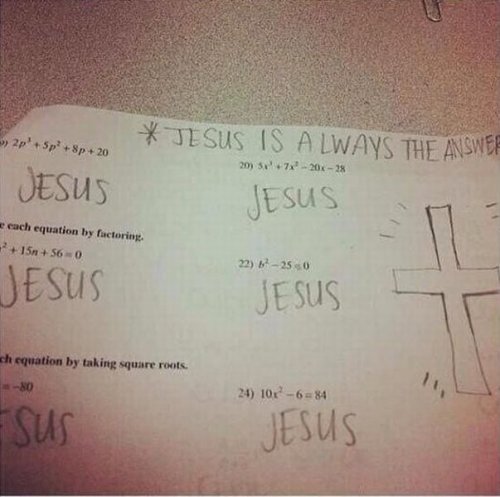 * JESUS IS ALWAYS THE ANSWER
2p³ + 5p² + 8p + 20
20) 5x³ + 7x² − 20x − 28
JESUS
JESUS
each equation by factoring.
² + 15n + 56 = 0
22) b² − 25 = 0
JESUS
JESUS
ch equation by taking square roots.
= −80
24) 10x² − 6 = 84
ESUS
JESUS